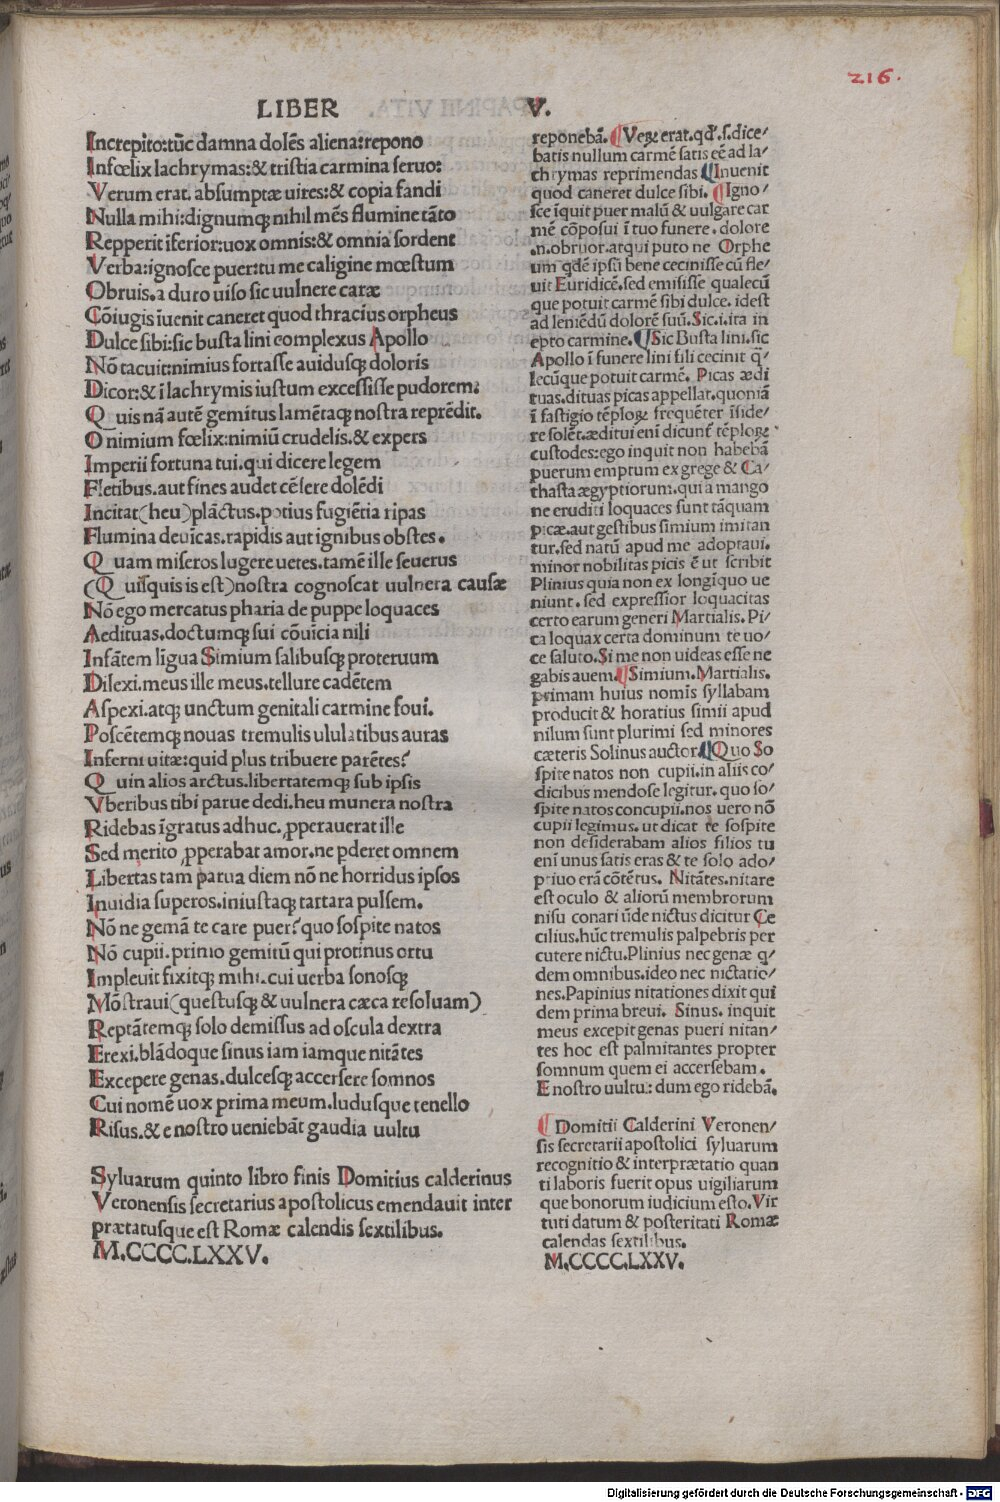 216.
LIBER V.
Increpito:tũc damna dolẽs aliena:repono
Infœlix lachrymas:& tristia carmina seruo:
Verum erat. absumptæ uires:& copia fandi
Nulla mihi:dignumq; nihil mẽs flumine tãto
Repperit iferior:uox omnis:& omnia sordent
Verba:ignosce puer:tu me caligine mœstum
Obruis.a duro uiso sic uulnere caræ
Cõiugis ĩuenit caneret quod thracius orpheus
Dulce sibi:sic busta lini complexus Apollo
Nõ tacuit:nimius fortasse auidusq; doloris
Dicor:& ĩ lachrymis iustum excessisse pudorem:
Quis nã autẽ gemitus lamẽtaq; nostra reprẽdit.
O nimium fœlix:nimiũ crudelis.& expers
Imperii fortuna tui.qui dicere legem
Fletibus.aut fines audet cẽsere dolẽdi
Incitat(heu)plãctus.potius fugiẽtia ripas
Flumina deuĩcas.rapidis aut ignibus obstes.
Quam miseros lugere uetes.tamẽ ille seuerus
(Quisquis is est)nostra cognoscat uulnera causæ
Nõ ego mercatus pharia de puppe loquaces
Aedituas.doctumq; sui cõuicia nili
Infãtem lĩgua Simium salibusq; proteruum
Dilexi.meus ille meus.tellure cadẽtem
Aspexi.atq; unctum genitali carmine foui.
Poscẽtemq; nouas tremulis ululatibus auras
Inferni uitæ:quid plus tribuere parẽtes?
Quin alios arctus.libertatemq; sub ipsis
Vberibus tibi parue dedi.heu munera nostra
Ridebas ĩgratus adhuc.ꝓperauerat ille
Sed merito ꝓperabat amor.ne ꝑderet omnem
Libertas tam parua diem nõ ne horridus ipsos
Inuidia superos.iniustaq; tartara pulsem.
Nõ ne gemã te care puer? quo sospite natos
Nõ cupii.primo gemitũ qui protinus ortu
Impleuit fixitq; mihi.cui uerba sonosq;
Mõstraui(questusq; & uulnera cæca resoluam)
Reptãtemq; solo demissus ad oscula dextra
Erexi.blãdoque sinus iam iamque nitãtes
Excepere genas.dulcesq; accersere somnos
Cui nomẽ uox prima meum.ludusque tenello
Risus.& e nostro ueniebãt gaudia uultu
Syluarum quinto libro finis Domitius calderinus
Veronensis secretarius apostolicus emendauit inter
prætatusque est Romæ calendis sextilibus.
M.CCCC.LXXV.
reponebã. Veꝝ erat.qđ.s.dice/
batis nullum carmẽ satis eẽ ad la/
chrymas reprimendas Inuenit
quod caneret dulce sibi. Igno/
sce ĩquit puer malũ & uulgare car
mẽ cõposui ĩ tuo funere. dolore
.n.obruor.atqui puto ne Orphe
um qdẽ ipsũ bene cecinisse cũ fle/
uit Euridicẽ.sed emisisse qualecũ
que potuit carmẽ sibi dulce. idest
ad leniẽdũ dolorẽ suũ. Sic.i.ita in
epto carmine. Sic Busta lini.sic
Apollo ĩ funere lini fili cecinit q̃/
lecũque potuit carmẽ. Picas ædi
tuas.dituas picas appellat.quoniã
ĩ fastigio tẽploꝝ frequẽter ĩside/
re solẽt.æditui eni dicunt̃ tẽploꝝ
custodes:ego inquit non habebã
puerum emptum ex grege & Ca/
thasta ægyptiorum.qui a mango
ne eruditi loquaces sunt tãquam
picæ.aut gestibus simium imitan
tur.sed natũ apud me adoptaui.
minor nobilitas picis ẽ ut scribit
Plinius quia non ex longĩquo ue
niunt. sed expressior loquacitas
certo earum generi Martialis. Pi/
ca loquax certa dominum te uo/
ce saluto.Si me non uideas esse ne
gabis auem. Simium.Martialis.
primam huius nomĩs syllabam
producit & horatius simii apud
nilum sunt plurimi sed minores
cæteris Solinus auctor. Quo So
spite natos non cupii.in aliis co/
dicibus mendose legitur. quo so/
spite natos concupii.nos uero nõ
cupii legimus. ut dicat te sospite
non desiderabam alios filios tu
enĩ unus satis eras & te solo ado/
ptiuo erã cõtẽtus. Nitãtes.nitare
est oculo & aliorũ membrorum
nisu conari ũde nictus dicitur Ce
cilius.hũc tremulis palpebris per
cutere nictu.Plinius nec genæ q/
dem omnibus.ideo nec nictatio/
nes.Papinius nitationes dixit qui
dem prima breui. Sinus. inquit
meus excepit genas pueri nitan/
tes hoc est palmitantes propter
somnum quem ei accersebam.
E nostro uultu.: dum ego ridebã.
Domitii Calderini Veronen/
sis secretarii apostolici syluarum
recognitio & interprætatio quan
ti laboris fuerit opus uigiliarum
que bonorum iudicium esto.Vir
tuti datum & posteritati Romæ
calendas sextilibus.
M.CCCC.LXXV.
Digitalisierung gefördert durch die Deutsche Forschungsgemeinschaft - DFG